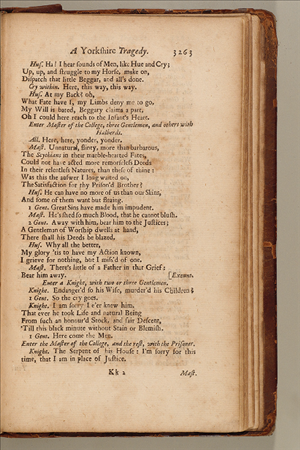 A Yorkshire Tragedy. 3263
Hus. Ha! I hear sounds of Men, like Hue and Cry;
Up, up, and struggle to my Horse, make on,
Dispatch that little Beggar, and all's done.
Cry within. Here, this way, this way.
Hus. At my Back? oh,
What Fate have I, my Limbs deny me to go.
My Will is bated, Beggary claims a part,
Oh I could here reach to the Infant's Heart.
Enter Master of the College, three Gentlemen, and others with
Halberds.
All. Here, here, yonder, yonder.
Mast. Unnatural, flinty, more than barbarous,
The Scythians in their marble-hearted Fates,
Could not have acted more remorseless Deeds
In their relentless Natures, than these of thine:
Was this the answer I long waited on,
The Satisfaction for thy Prison'd Brother?
Hus. He can have no more of us than our Skins,
And some of them want but fleaing.
1 Gent. Great Sins have made him impudent.
Mast. He's shed so much Blood, that he cannot blush.
2 Gent. Away with him, bear him to the Justices;
A Gentleman of Worship dwells at hand,
There shall his Deeds be blazed.
Hus. Why all the better,
My glory 'tis to have my Action known,
I grieve for nothing, but I miss'd of one.
Mast. There's little of a Father in that Grief:
Bear him away. [Exeunt.
Enter a Knight, with two or three Gentlemen.
Knight. Endanger'd so his Wife, murder'd his Children?
1 Gent. So the cry goes.
Knight. I am sorry I e'er knew him.
That ever he took Life and natural Being
From such an honour'd Stock, and fair Descent,
'Till this black minute without Stain or Blemish.
1 Gent. Here come the Men.
Enter the Master of the College, and the rest, with the Prisoner.
Knight. The Serpent of his House: I'm sorry for this
time, that I am in place of Justice.
Kk 2 Mast.